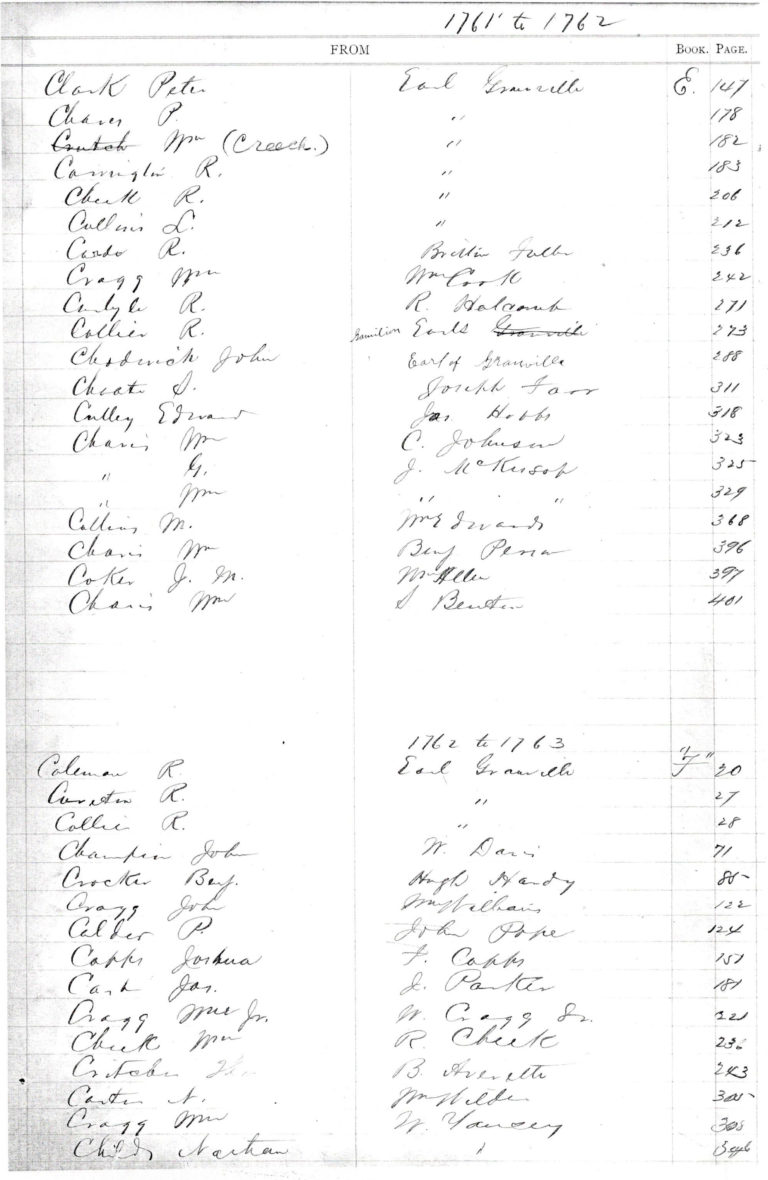 1761 to 1762
FROM BOOK. PAGE.
Clark Peter Earl Granville E. 147
Chaves P. " 178
Crutch Wm (Creech.) " 182
R. " 183
Cheek R. " 206
Collins L. " 212
Cardo R. Brittin Fuller 236
Cragg Wm Wm Cook 242
Carlyle R. R. Holcomb 271
Collier R. Earls Granville 273
Chedwick John Earl of Granville 288
Choate S. Joseph Farr 311
Culley Edward Jas Hobbs 318
Chavis Wm C. Johnson 323
" G. J. McKissop 325
" Wm " " 329
Collins M. Wm Edwards 368
Chavis Wm Benj Person 396
Coker J. M. Wm Allen 397
Chavis Wm S Benton 401
1762 to 1763
Coleman R. Earl Granville "F" 20
R. " 27
Collier R. " 28
Champion John W. Davis 71
Crocker Benj. Hugh Handy 85
Cragg John Wm Williams 122
Calder P. John Pope 124
Capps Joshua F. Capps 151
Cash Jas. J. Parker 181
Cragg Wm Jr. W. Cragg Sr. 221
Cheek Wm R. Cheek 236
Critcher B. Averette 243
Carter N. Wm Wilder 305
Cragg Wm W. Yancey 308
Childs Nathan " 346